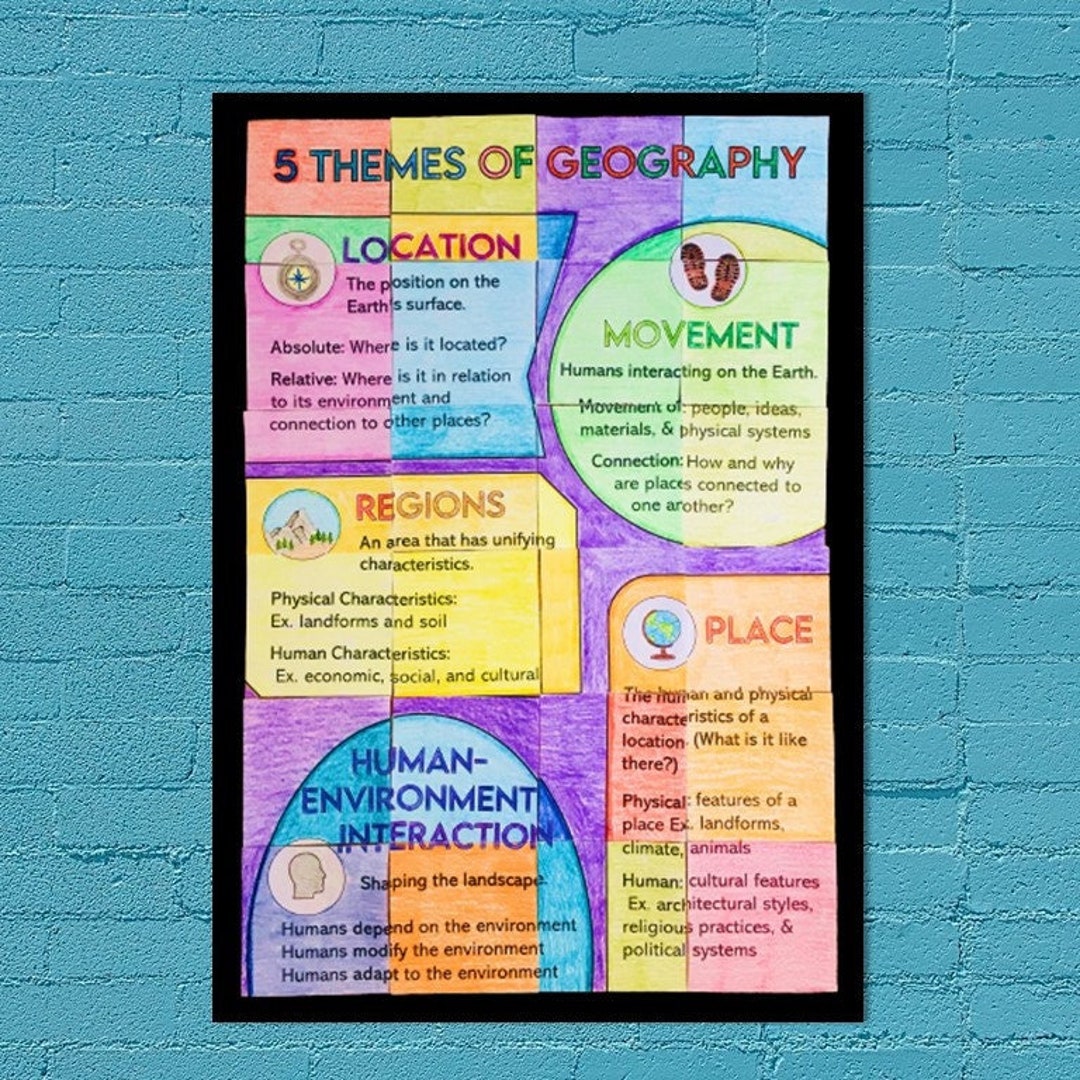 5 THEMES OF GEOGRAPHY
LOCATION
The position on the
Earth's surface.
Absolute: Where is it located?
Relative: Where is it in relation
to its environment and
connection to other places?
MOVEMENT
Humans interacting on the Earth.
Movement of: people, ideas,
materials, & physical systems
Connection: How and why
are places connected to
one another?
REGIONS
An area that has unifying
characteristics.
Physical Characteristics:
Ex. landforms and soil
Human Characteristics:
Ex. economic, social, and cultural
PLACE
The human and physical
characteristics of a
location. (What is it like
there?)
Physical: features of a
place Ex. landforms,
climate, animals
Human: cultural features
Ex. architectural styles,
religious practices, &
political systems
HUMAN-
ENVIRONMENT
INTERACTION
Shaping the landscape.
Humans depend on the environment
Humans modify the environment
Humans adapt to the environment